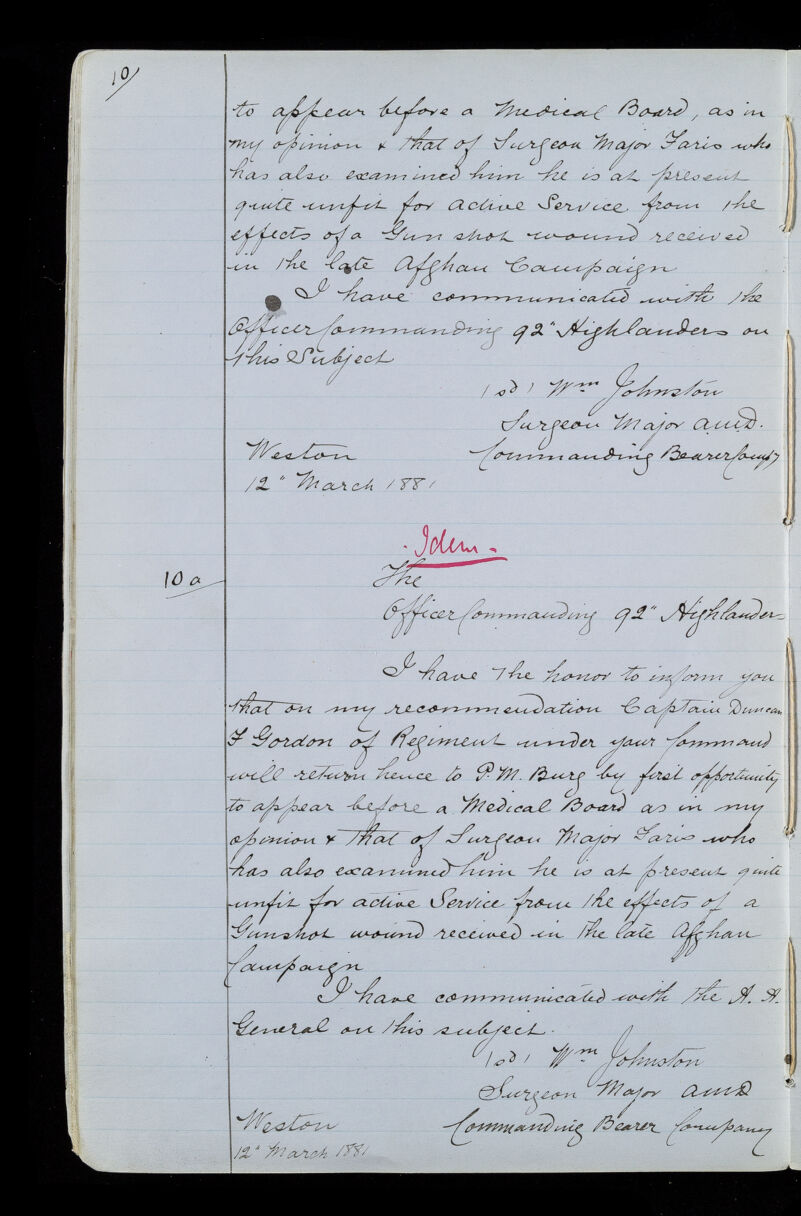 10/
to appear before a Medical Board, as in
my opinion & that of Surgeon Major Faris who
has also examined him he is at present
quite unfit for active Service from the
effects of a Gun shot wound received
in the late Afghan Campaign
I have communicated with the
Officer Commanding 92" Highlanders on
this Subject
(sd) Wm Johnston
Surgeon Major A.M.D.
Weston Commanding Bearer Compy
12" March 1881
Idem -
10a The
Officer Commanding 92" Highlanders
I have the honor to inform you
that on my recommendation Captain Duncan
F Gordon of Regiment under your Command
will return hence to P.M. Burg by first opportunity
to appear before a Medical Board as in my
opinion & that of Surgeon Major Faris who
has also examined him he is at present quite
unfit for active Service from the effects of a
Gunshot wound received in the late Afghan
Campaign
I have communicated with the A. A.
General on this subject.
(sd) Wm Johnston
Surgeon Major AMD
Weston Commanding Bearer Company
12" March 1881